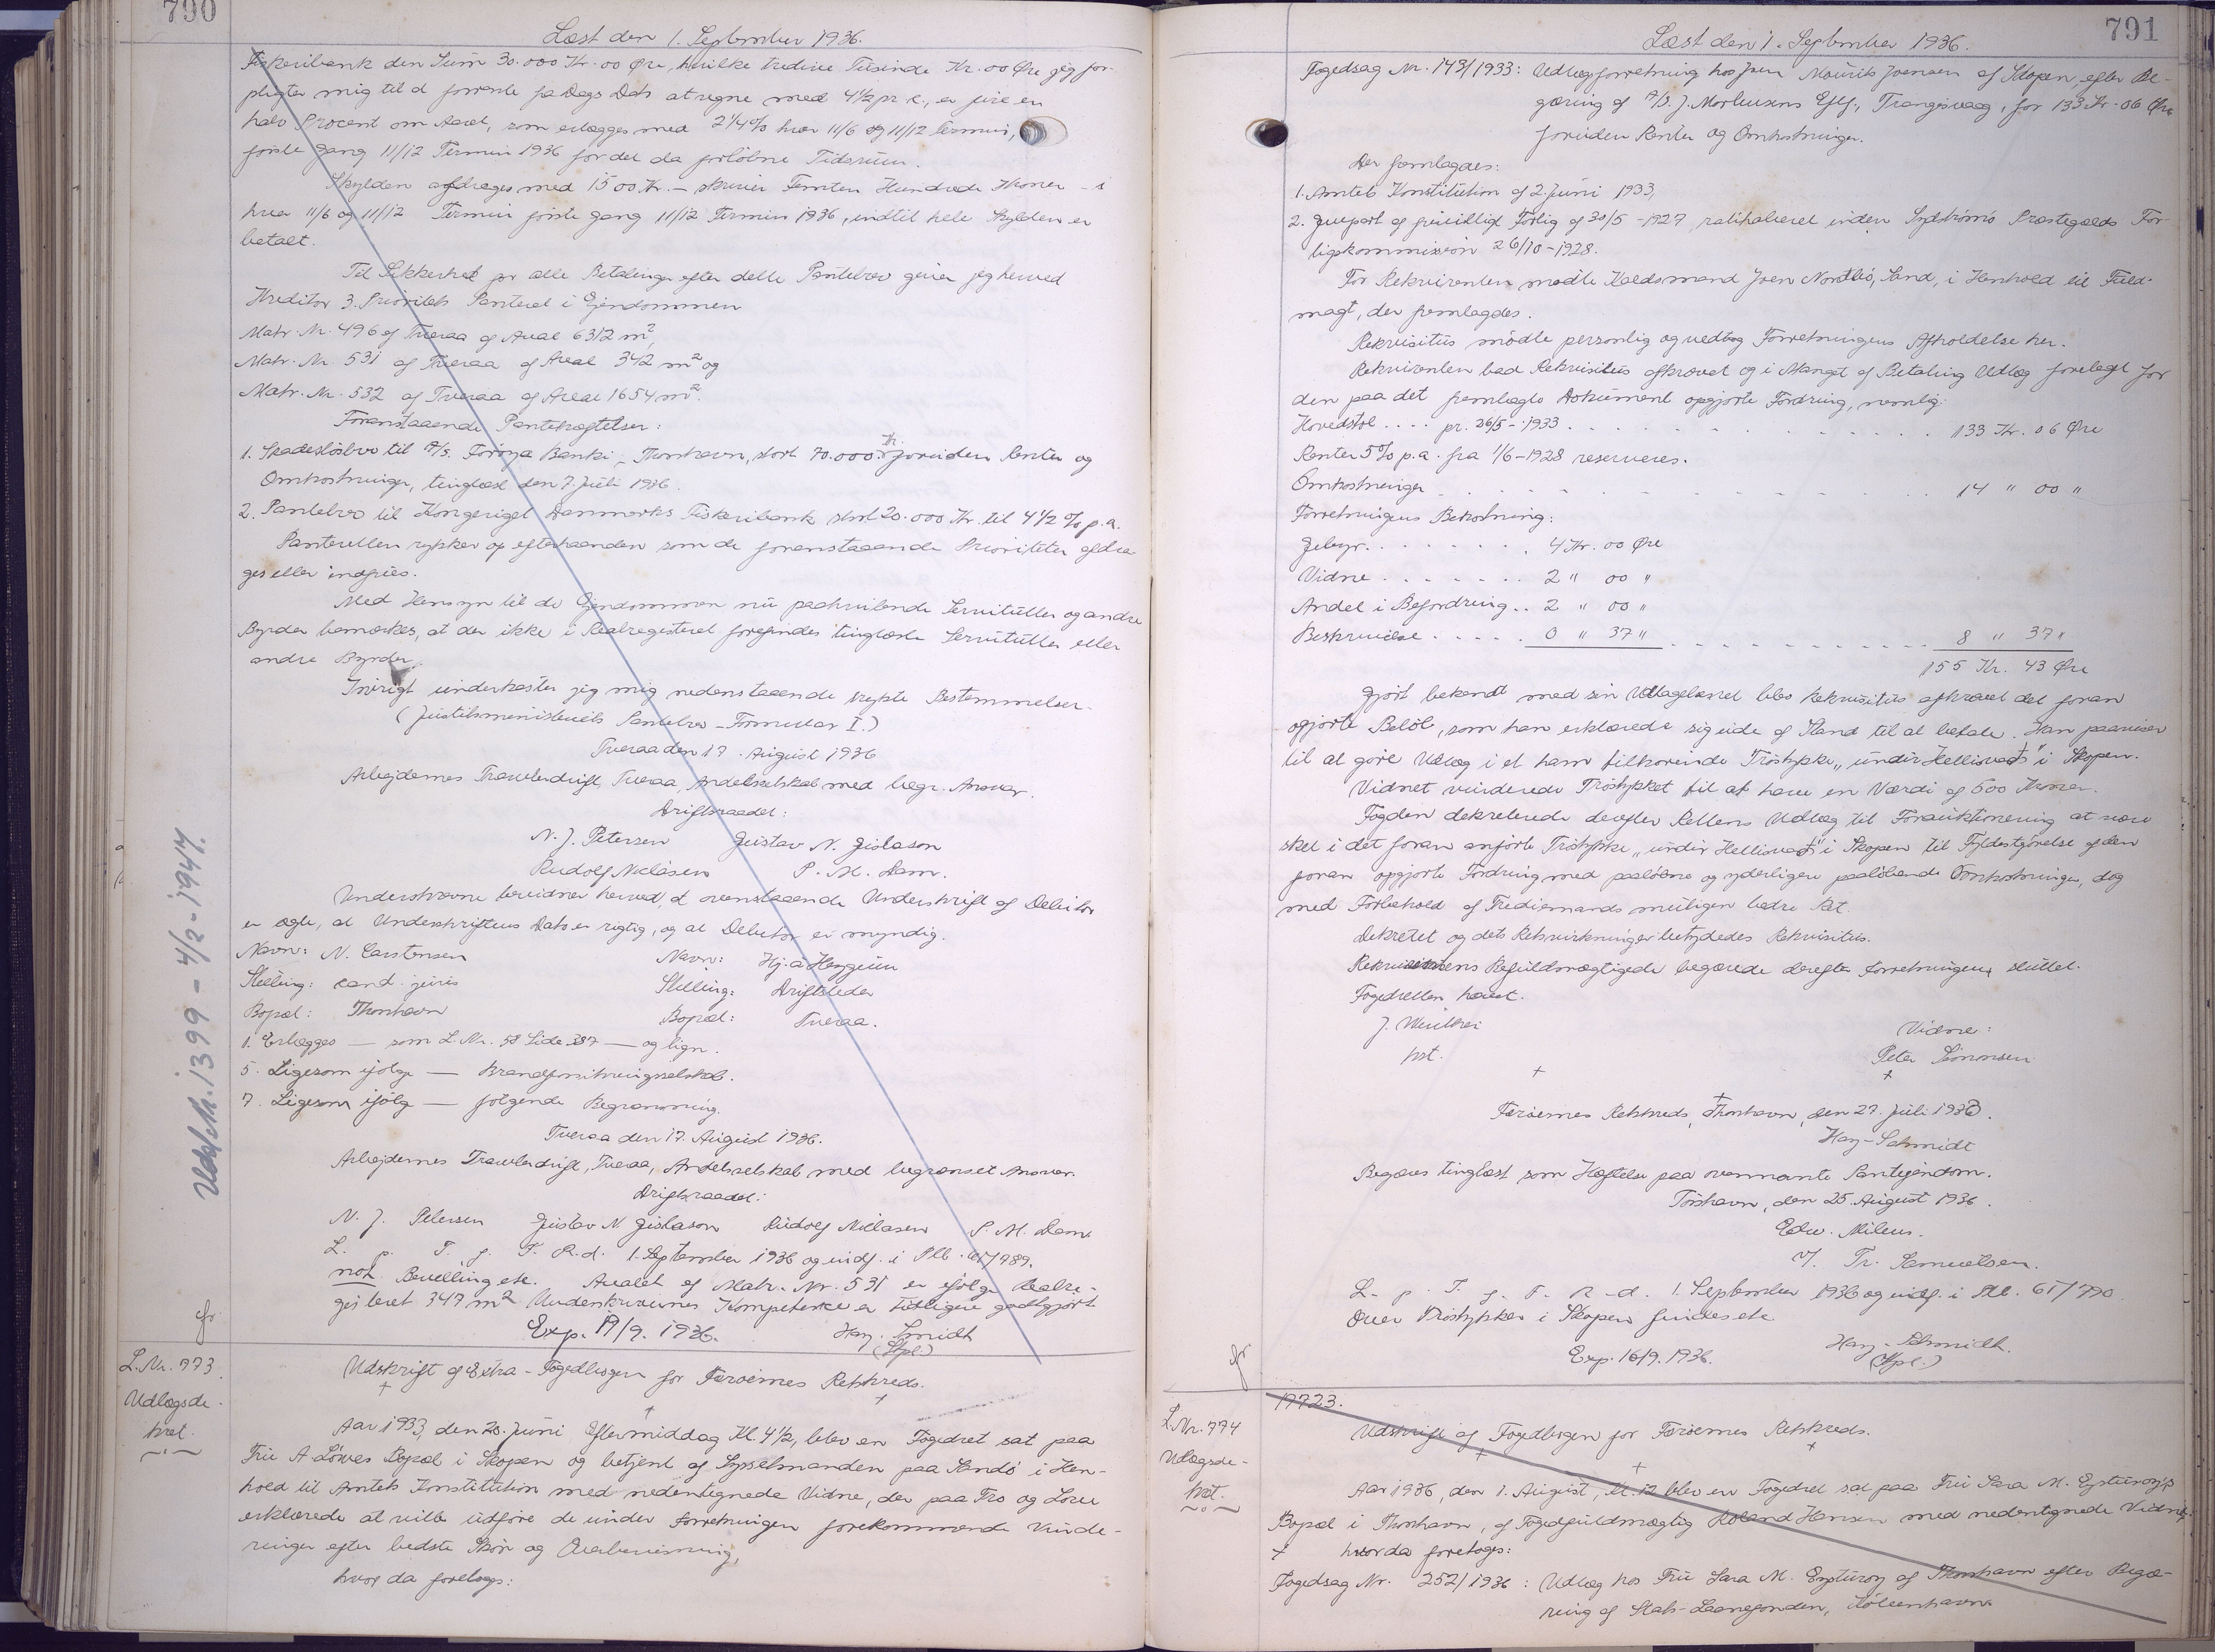 790
Læst den 1. September 1936.
Fiskeribank den Sum 30.000 Kr. 00 Øre, hvilke tredive Tusinde Kr. 00 Øre jeg for-
pligter mig til at forrente fra Dags Dato at regne med 4½ pr. c., er fire en
halv Procent om Aaret, som erlægges med 2¼% hver 11/6 og 11/12 Termin,
første Gang 11/12 Termin 1936 for det da forløbne Tidsrum.
Skylden afdrages med 1500 Kr. – skriver Femten Hundrede Kroner – i
hver 11/6 og 11/12 Termin første Gang 11/12 Termin 1936, indtil hele Skylden er
betalt.
Til Sikkerhed for alle Betalinger efter dette Pantebrev giver jeg herved
Kreditor 3. Prioritets Panteret i Ejendommen
Matr. Nr. 496 af Tveraa af Areal 6312 m²,
Matr. Nr. 531 af Tveraa af Areal 342 m² og
Matr. Nr. 532 af Tveraa af Areal 1654 m².
Foranstaaende Pantehæftelser:
1. Skadesløsbrev til A/S. Føroya Banki, Thorshavn, stort 70.000 Kr. foruden Renter og
Omkostninger, tinglæst den 7. Juli 1936.
2. Pantebrev til Kongeriget Danmarks Fiskeribank stort 20.000 Kr. til 4½ % p.a.
Panteretten rykker op efterhaanden som de foranstaaende Prioriteter afdra-
ges eller indfries.
Med Hensyn til de Ejendommen nu paahvilende Servitutter og andre
Byrder bemærkes, at der ikke i Realregisteret forefindes tinglæste Servitutter eller
andre Byrder.
Iøvrigt underkaster jeg mig nedenstaaende trykte Bestemmelser.
(Justitsministeriets Pantebrev – Formular I.)
Tveraa den 17. August 1936
Arbejdernes Trawlerdrift, Tveraa, Andelsselskab med begr. Ansvar.
Driftsraadet:
N. J. Petersen Gustav N. Gislason
Rudolf Niclasen P. M. Dam.
Underskrevne bevidner herved, at ovenstaaende Underskrift af Debitor
er ægte, at Underskriftens Dato er rigtig, og at Debitor er myndig.
Navn: N. Carstensen Navn: Hj. á Heygum
Stilling: cand. juris Stilling: Driftsleder
Bopæl: Thorshavn Bopæl: Tveraa.
1. Erlægges — som L. Nr. 58 Side 387 — og lign.
5. Ligesom ifølge — Brandforsikringsselskab.
7. Ligesom ifølg — følgende Begrænsning.
Tveraa den 17. August 1936.
Arbejdernes Trawlerdrift, Tveraa, Andelsselskab med begrænset Ansvar.
Driftsraadet:
N. J. Petersen Gustav N Gislason Rudolf Niclasen P. M. Dam.
L. p. T. f. F. R.d. 1. September 1936 og indf. i Ptb. 61/789.
not Bevilling etc. Arealet af Matr. Nr. 531 er ifølge Realre-
gisteret 347 m² Underskrivernes Kompetence er tidligere godtgjort
Exp. 19/9. 1936. Hay-Smidt
(Kpl.)
Udslettet. 1399 – 4/2-1947.
L. Nr. 773.
Udlægsde-
kret.
Udskrift af Extra-Fogedbogen for Færøernes Retskreds.
Aar 1933, den 20. Juni Eftermiddag Kl. 4½, blev en Fogedret sat paa
Fru A Löwes Bopæl i Skopen og betjent af Sysselmanden paa Sandö i Hen-
hold til Amtets Konstitution med nedentegnede Vidne, der paa Tro og Love
erklærede at ville udføre de under Forretningen forekommende Vurde-
ringer efter bedste Skøn og Overbevisning,
hvor da foretoges:
791
Læst den 1. September 1936.
Fogedsag Nr. 143/1933: Udlægsforretning hos Joen Mourits Joensen af Skopen, efter Be-
gæring af A/S. J. Mortensens Eftf., Trangisvaag, for 133 Kr. 06 Øre
foruden Renter og Omkostninger.
Der fremlagdes:
1. Amtets Konstitution af 2. Juni 1933,
2. Genpart af frivilligt Forlig af 30/5 - 1927 ratihaberet inden Sydstrømø Præstegælds For-
ligskommission 26/10-1928.
For Rekvirenten mødte Kaldsmand Joen Nordbö, Sand, i Henhold til Fuld-
magt, der fremlagdes.
Rekvisitus mødte personlig og vedtog Forretningens Afholdelse her.
Rekvirenten bad Rekvisitus afkrævet og i Mangel af Betaling Udlæg forelagt for
den paa det fremlagte Dokument opgjorte Fordring, nemlig:
Hovedstol .... pr. 26/5-1933 . . . . . . 133 Kr. 06 Øre
Renter 5% p.a. fra 1/6-1928 reserveres.
Omkostninger . . . . . . 14 " 00 "
Forretningens Bekostning:
Gebyr. . . . . . . . 4 Kr. 00 Øre
Vidne . . . . . . . 2 " 00 "
Andel i Befordring . . 2 " 00 "
Beskrivelse . . . . . 0 " 37 " . . . . . . 8 " 37 "
155 Kr. 43 Øre
Gjort bekendt med sin Udlagelsesret blev Rekvisitus afkrævet det foran
opgjorte Beløb, som han erklærede sig ude af Stand til at betale. Han paaviser
til at gøre Udlæg i et ham tilhørende Tröstykke „undir Hellisvað" i Skopen.
Vidnet vurderede Tröstykket til at have en Værdi af 500 Kroner.
Fogden dekreterede derefter Rettens Udlæg til Forauktionering at være
sket i det foran anførte Tröstykke „undir Hellisvað" i Skopen til Fyldestgørelse af den
foran opgjorte Fordring med paaløbne og yderligere paaløbende Omkostninger, dog
med Forbehold af Trediemands muligen bedre Ret.
Dekretet og dets Retsvirkninger betydedes Rekvisitus.
Rekvirentens Befuldmægtigede begærede derefter Forretningen sluttet.
Fogedretten hævet.
J. Winther Vidne:
kst. Peter Simonsen
Færøernes Retskreds, Thorshavn, den 27. Juli 1933.
Hay-Schmidt
Begæres tinglæst som Hæftelse paa ovennævnte Pantejendom.
Tórshavn, den 25. August 1936.
Edw. Mitens.
v/ Tr. Samuelsen.
L. p. T. f. F. R-d. 1. September 1936 og indf. i Ptb. 61/790
Over Tröstykker i Skopen findes etc
Hay-Schmidt.
Exp. 16/9. 1936. (Kpl.)
L. Nr. 774
Udlægsde-
kret.
19723.
Udskrift af Fogedbogen for Færøernes Retskreds.
Aar 1936, den 1. August, Kl. 12 blev en Fogedret sat paa Fru Sara M. Eysturoy's
Bopæl i Thorshavn, af Fogedfuldmægtig Roland Hansen med nedentegnede Vidner,
hvor da foretoges:
Fogedsag Nr. 252/1936: Udlæg hos Fru Sara M. Eysturoy af Thorshavn efter Begæ-
ring af Stats-Laanefonden, København.